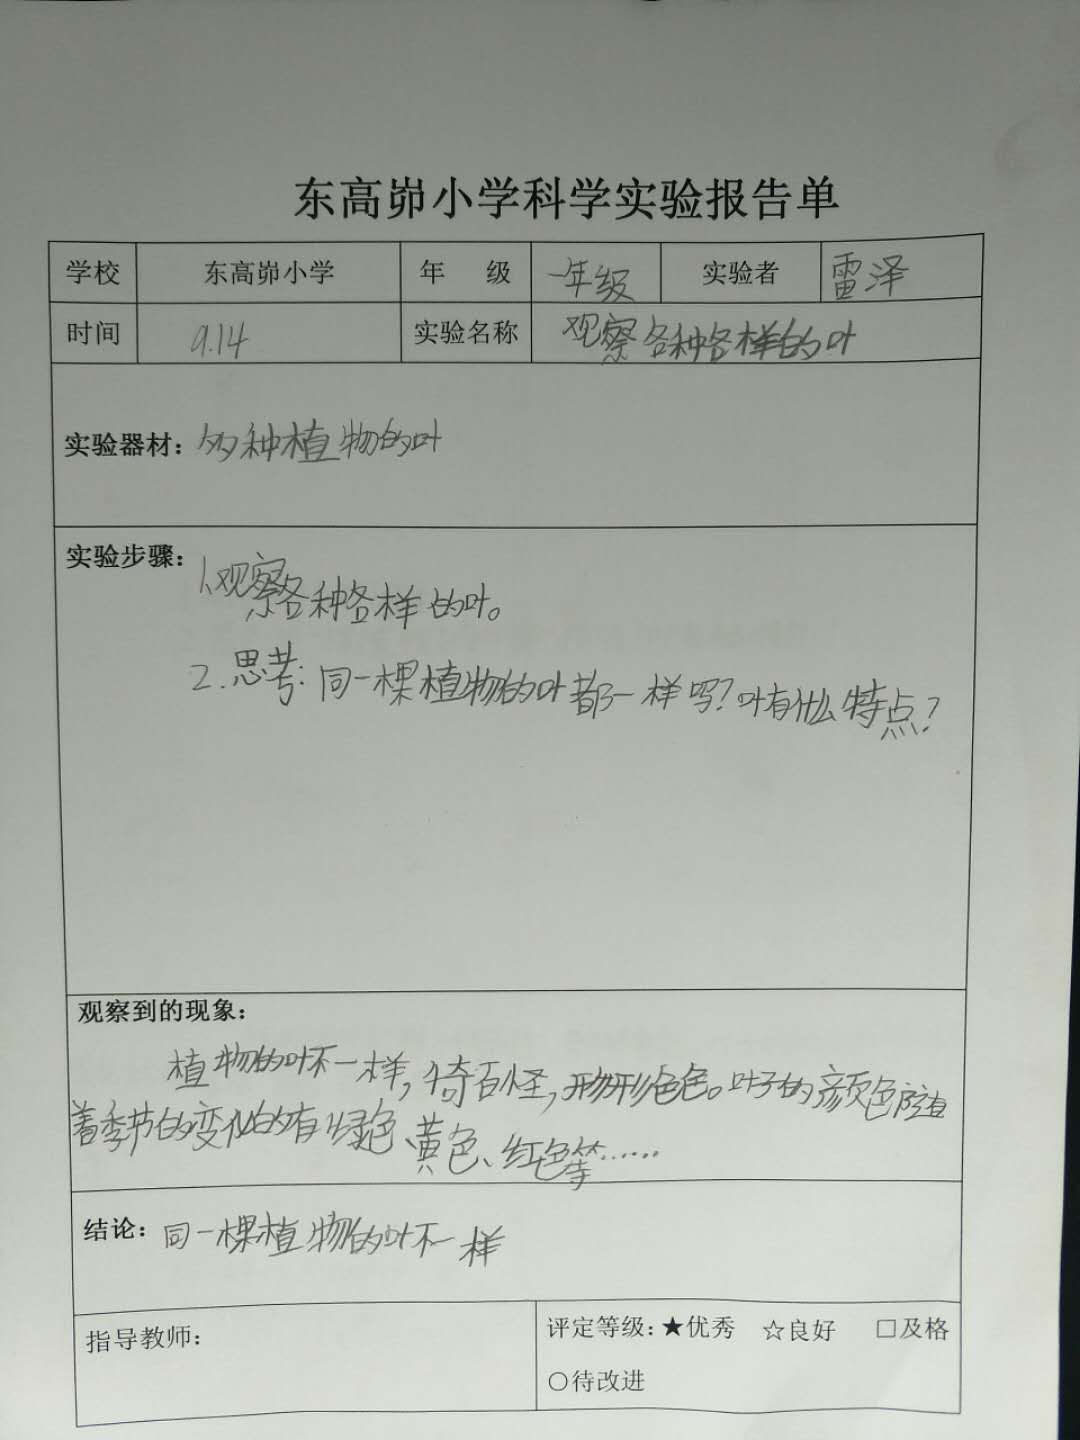 东高峁小学科学实验报告单
学校 东高峁小学 年 级 一年级 实验者 雷泽
时间 9.14 实验名称 观察各种各样的叶
实验器材：多种植物的叶
实验步骤：1.观察各种各样的叶。
2.思考：同一棵植物的叶都一样吗？叶有什么特点？
观察到的现象：
植物的叶不一样，倚百怪，形形色色。叶子的颜色随
着季节的变化的有绿色、黄色、红色等……
结论：同一棵植物的叶不一样
指导教师： 评定等级：★优秀 ☆良好 □及格
○待改进